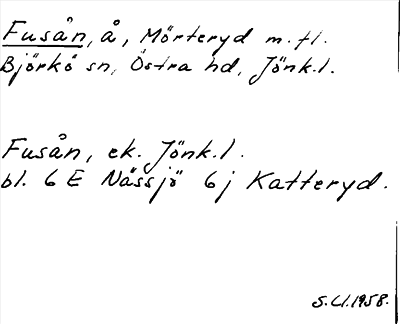 Fusån, å, Mörteryd m.fl.
Björkö sn, Östra hd, Jönk.l.
Fusån, ek. Jönk.l.
bl. 6 E Nässjö 6j Katteryd.
S.U.1958.